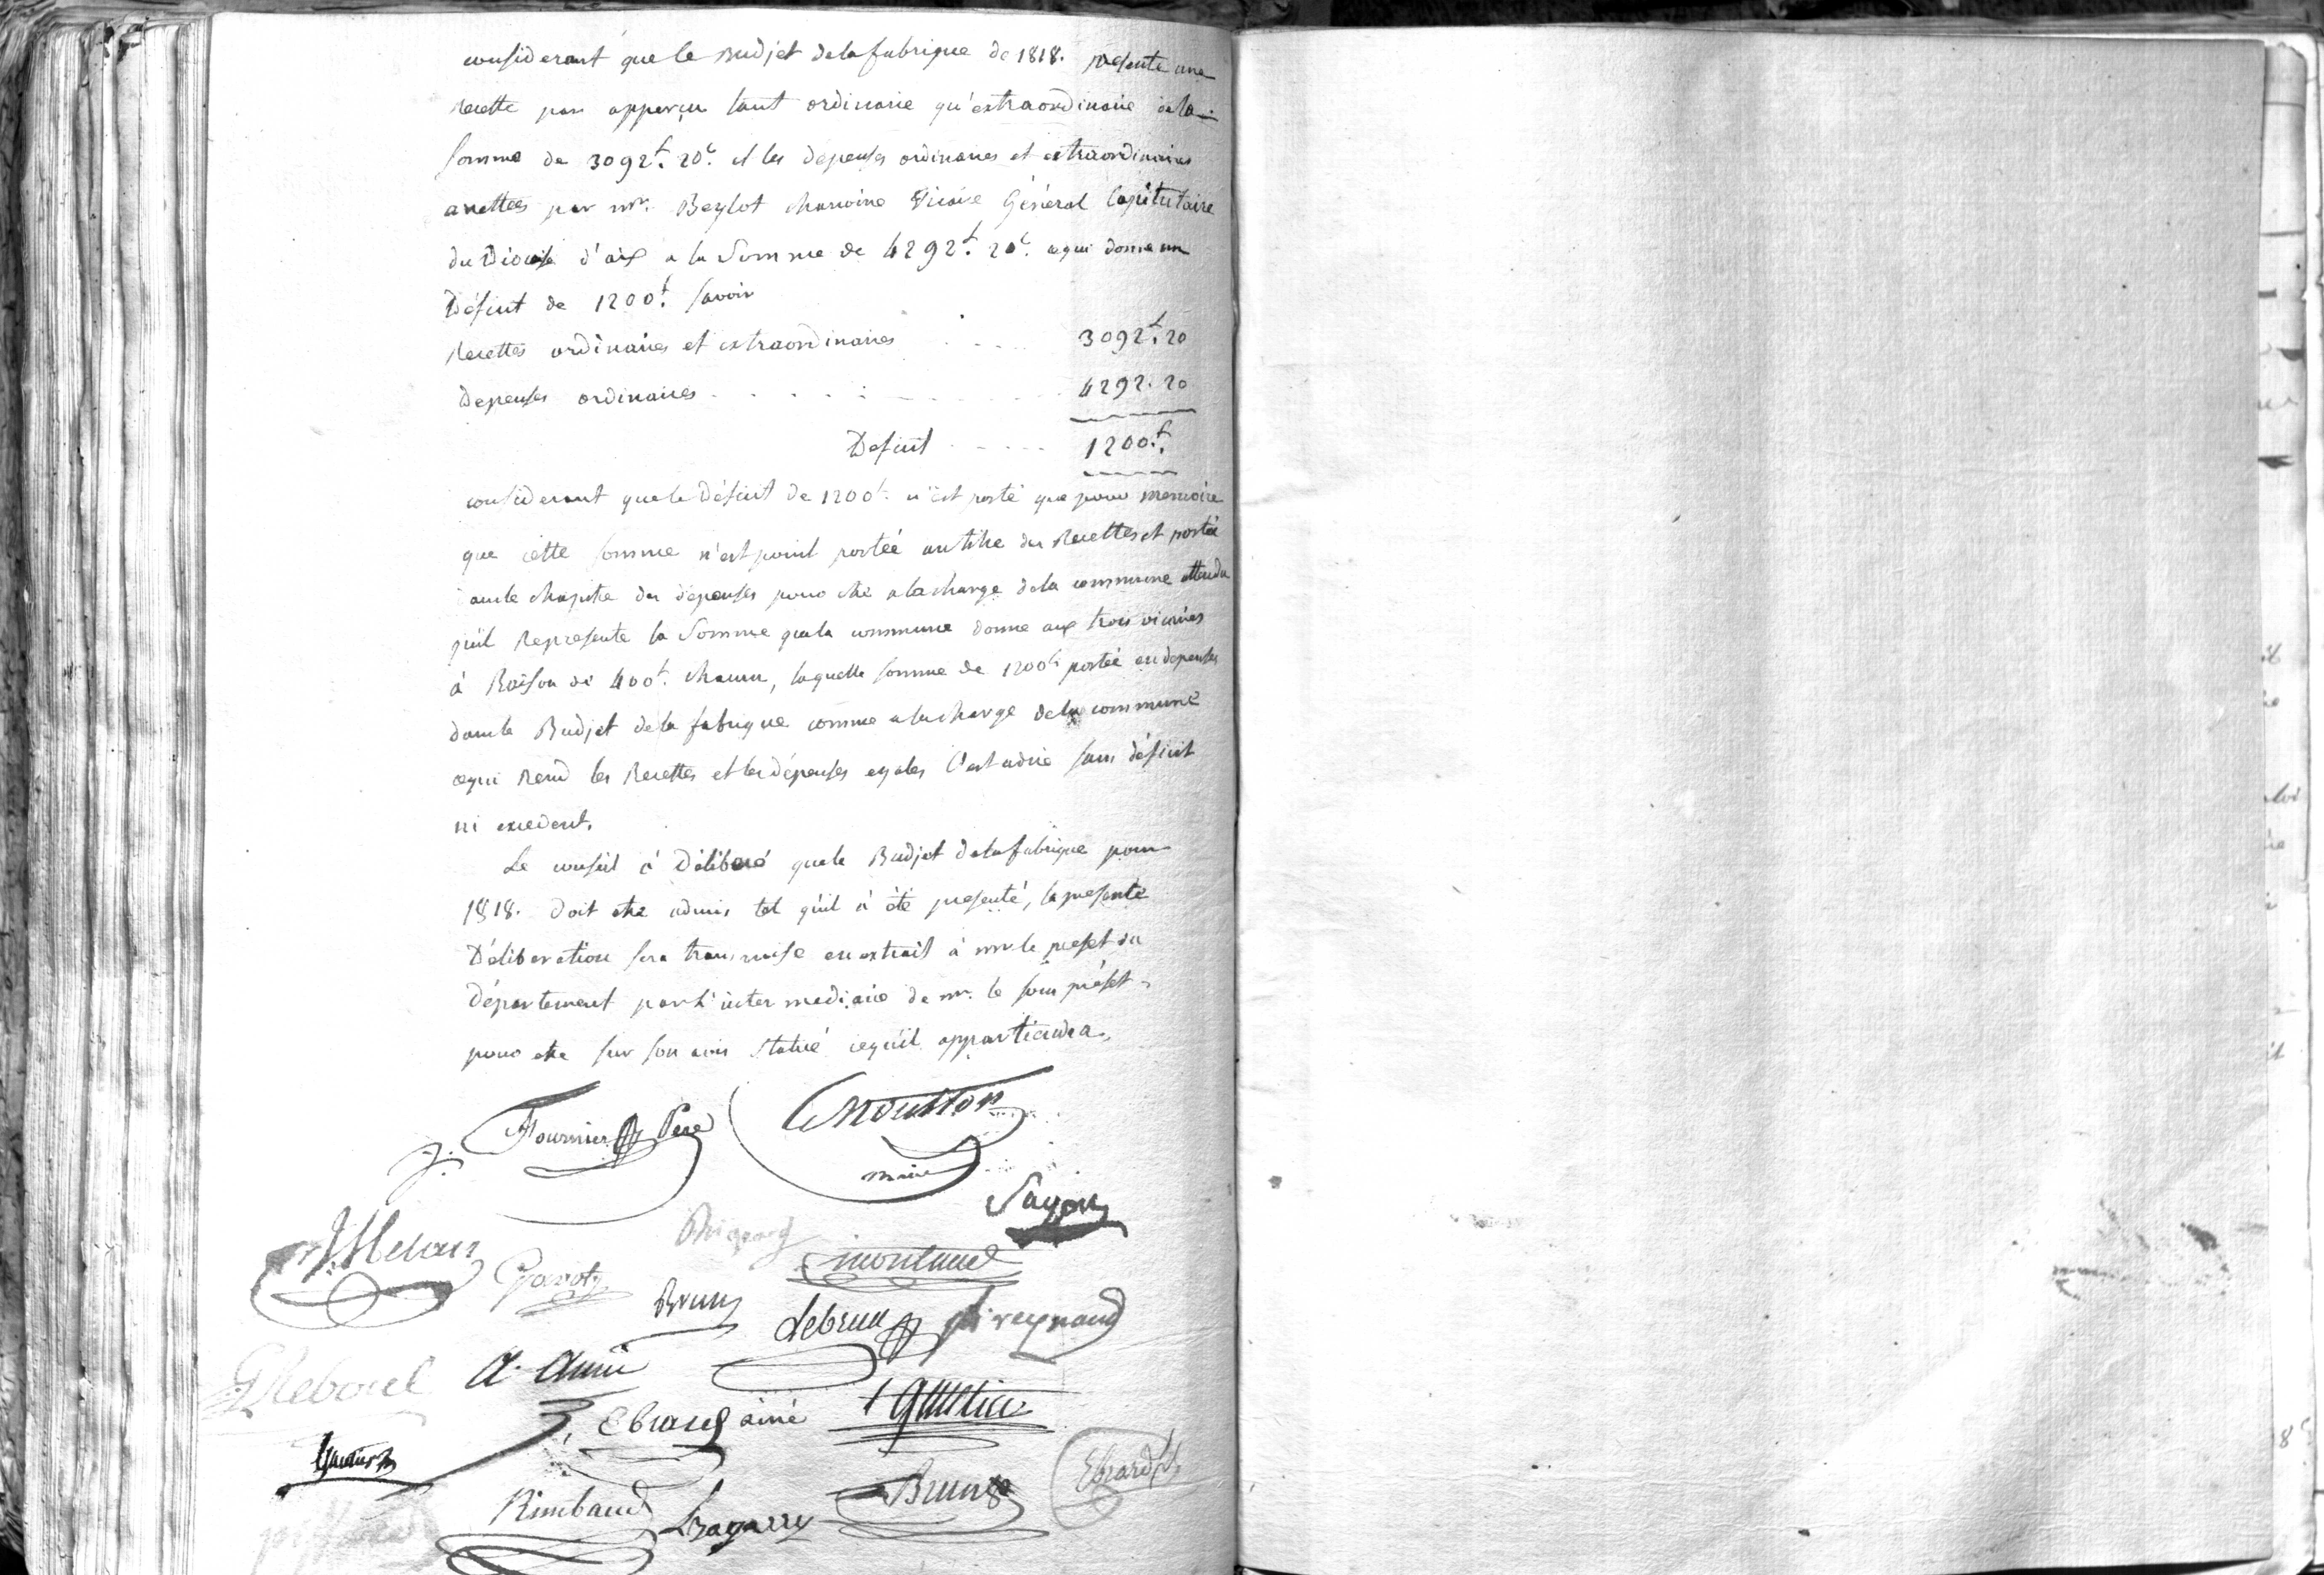 considerant que le Budjet dela fabrique de 1818. presente une
Recette par apperçu tant ordinaire qu'extraordinaire de la
somme de 3092f. 20c. et les depenses ordinaires et extraordinaires
arettées par mr. Beylot chanoine Vicaire Général Capitulaire
du Diocèse d'aix a la Somme de 4292f. 20c. cequi donne un
Déficit de 1200f. savoir
Recettes ordinaires et extraordinaires 3092f. 20
Depenses ordinaires 4292. 20
Deficit 1200f.
considerant que le Déficit de 1200f. n'est porté que pour memoire
que cette somme n'est point portée au titre des Recettes et portée
au le chapitre des dépenses pour etre a la charge dela commune attendu
qu'il Represente la Somme que la commune donne aux trois vicaires
à Raison de 400f. chacun, laquelle somme de 1200f. portée en depenses
dans le Budjet dela fabrique comme a la charge dela commune
cequi Rend les Recettes et les dépenses egales C'est adire sans déficit
ni excedent.
Le conseil à Délibéré que le Budjet dela fabrique pour
1818. doit etre admis tel qu'il à été presenté, la presente
Déliberation sera transmise en extrait à mr le prefet du
Département par l'intermediaire de mr. le sous préfet
pour etre sur son avis statué cequ'il appartiendra.
J. Fournier Pere Moutton
maire
Sayon
Melan
Gavoty
montaud
Brun
Lebrun reynaud
Reboul
A. Ami
Ebrard ainé
Rimbaud Bagarry Brun Ebrard